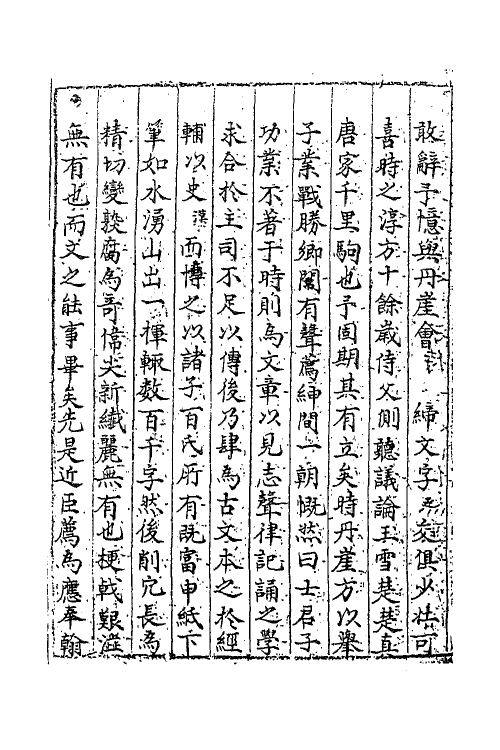 敢辭予憶與丹崖會 締文字交俱少壮可
喜時之淳方十餘歲侍父側聽議論玉雪楚楚真
唐家千里駒也予固期其有立矣時丹崖方以舉
子業戰勝鄉闈有聲薦紳間一朝慨然曰士君子
功業不著于時則為文章以見志聲律記誦之學
求合於主司不足以傳後乃肆為古文本之於經
輔以史漢而博之以諸子百氏所有既富申紙下
筆如水湧山出一揮輒数百千字然後削冗長為
精切變
腐為奇偉尖新纖麗無有也梗戟艱澁
無有也而文之能事畢矣先是近臣薦為應奉翰